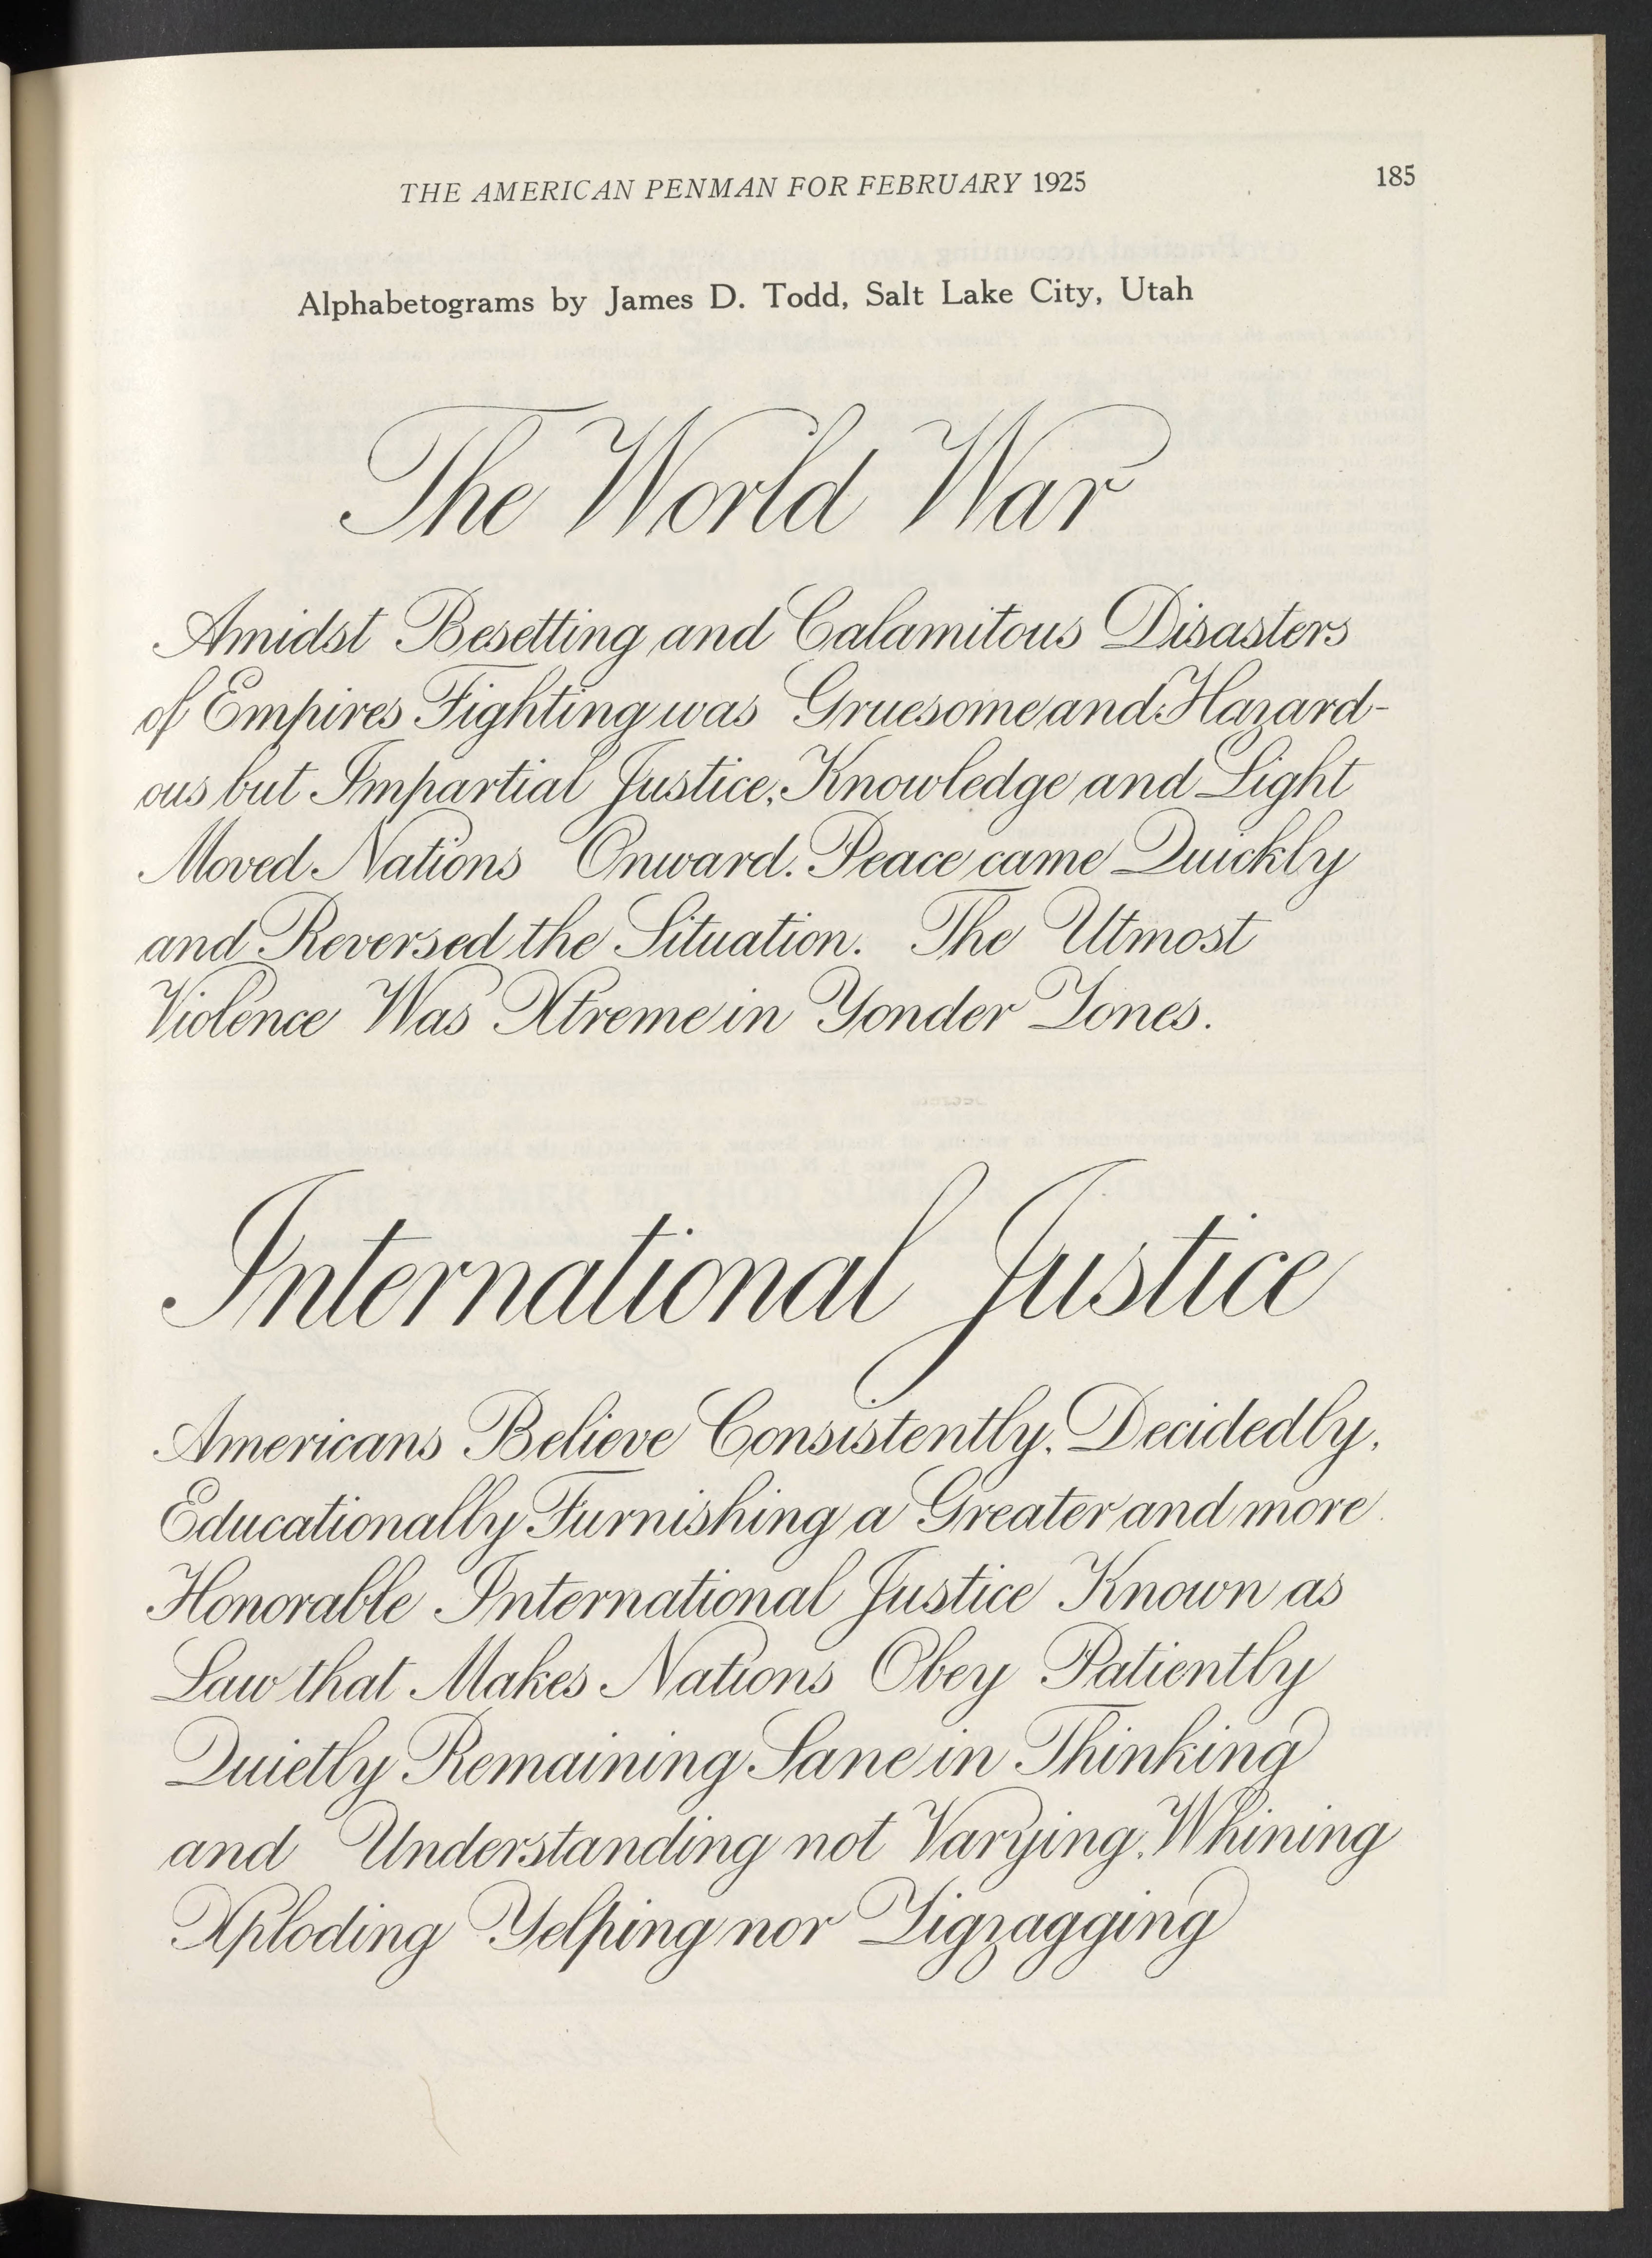 THE AMERICAN PENMAN FOR FEBRUARY 1925 185
Alphabetograms by James D. Todd, Salt Lake City, Utah
The World War
Amidst Besetting and Calamitous Disasters
of Empires Fighting was Gruesome and Hazard-
ous but Impartial Justice, Knowledge and Light
Moved Nations Onward. Peace came Quickly
and Reversed the Situation. The Utmost
Violence Was Xtreme in Yonder Zones.
International Justice
Americans Believe Consistently, Decidedly,
Educationally Furnishing a Greater and more
Honorable International Justice Known as
Law that Makes Nations Obey Patiently
Quietly Remaining Sane in Thinking
and Understanding not Varying, Whining
Xploding Yelping nor Zigzagging